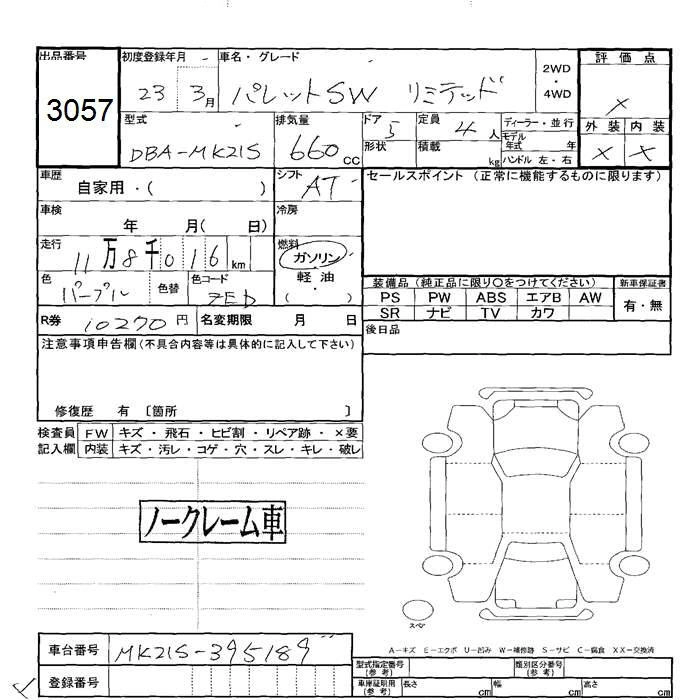 出品番号 初度登録年月 車名・グレード 2WD・4WD 評価点
3057 23 3月 パレットSW リミテッド ×
型式 排気量 ドア 5 定員 4人 ディーラー・並行 外装 内装
DBA-MK21S 660cc 形状 積載 kg モデル年式 年 × ×
ハンドル 左・右
車歴 自家用・( ) シフト AT セールスポイント (正常に機能するものに限ります)
車検 年 月( 日) 冷房
走行 11万8千016km 燃料 ガソリン
軽油
( )
色 パープル 色替 色コード ZED
装備品 (純正品に限り〇をつけてください) 新車保証書
PS PW ABS エアB AW 有・無
SR ナビ TV カワ
R券 10270円 名変期限 月 日 後日品
注意事項申告欄(不具合内容等は具体的に記入して下さい)
修復歴 有 〔箇所 〕
検査員 FW キズ・飛石・ヒビ割・リペア跡・×要
記入欄 内装 キズ・汚レ・コゲ・穴・スレ・キレ・破レ
ノークレーム車
スペア
A-キズ E-エクボ U-凹み W-補修跡 S-サビ C-腐食 XX-交換済
車台番号 MK21S-395189
型式指定番号 (参考) 類別区分番号 (参考)
登録番号 車庫証明用 (参考) 長さ cm 幅 cm 高さ cm